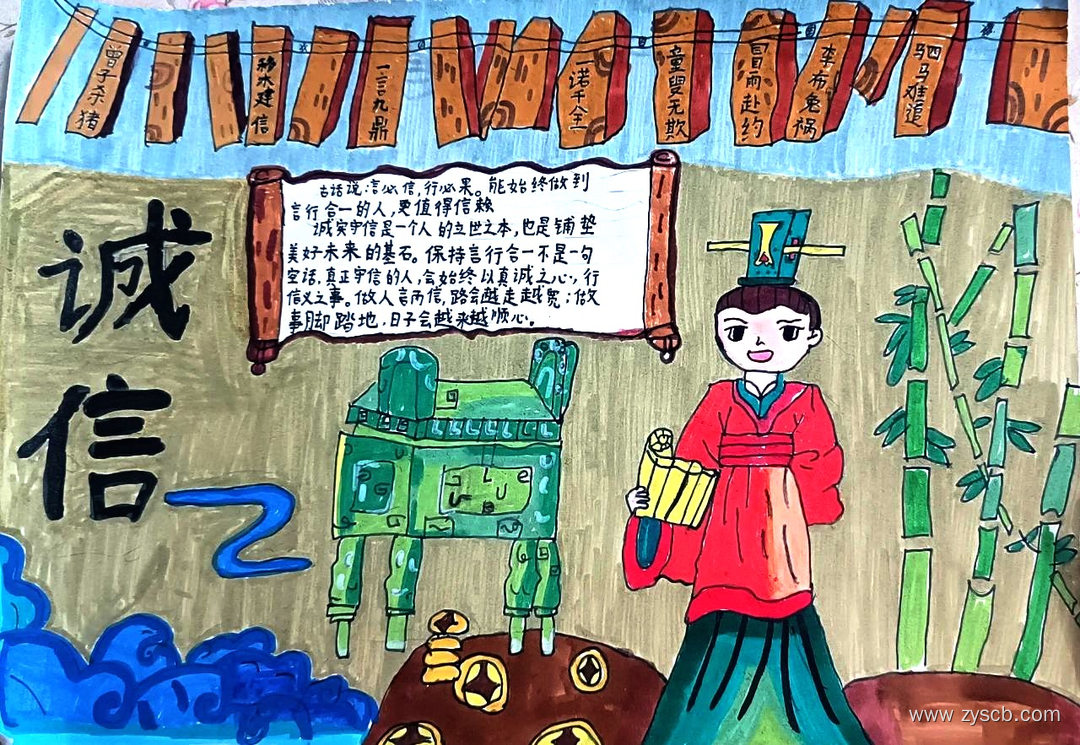 曾子杀猪
移木建信
一言九鼎
一诺千金
童叟无欺
冒雨赴约
李布免祸
驷马难追
古话说:言必信,行必果。能始终做到
言行合一的人,更值得信赖
诚实守信是一个人的立世之本,也是铺垫
美好未来的基石。保持言行合一不是一句
空话,真正守信的人,会始终以真诚之心,行
信义之事。做人言而信,路会越走越宽;做
事脚踏地,日子会越来越顺心。
诚
信
www.zyscb.com